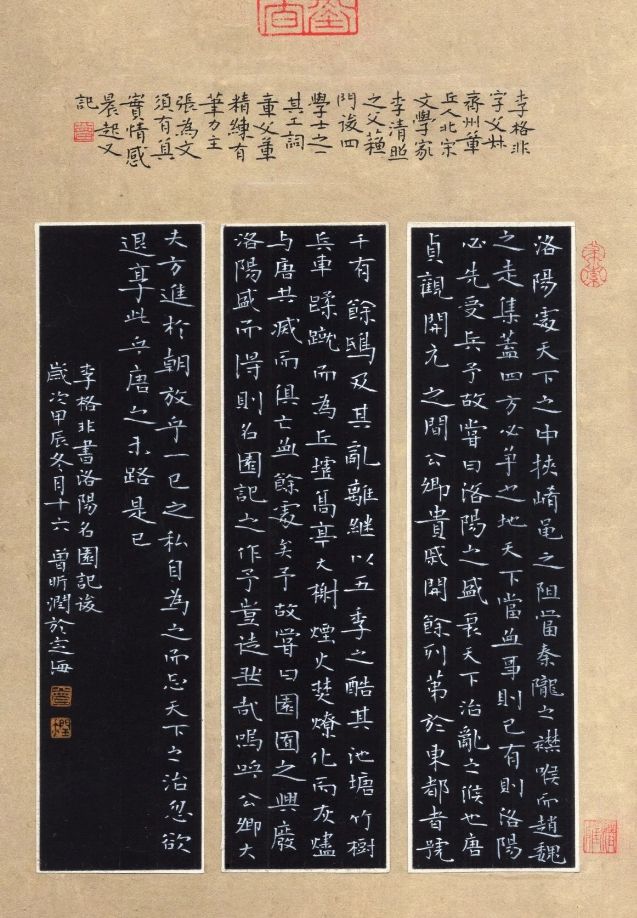 李格非
字文叔
齊州章
丘人北宋
文學家
李清照
之父蘇
門後四
學士之一
其工詞
章文章
精練有
筆力主
張為文
須有真
實情感
晨起又
記
洛陽處天下之中挾崤黽之阻當秦隴之襟喉而趙魏
之走集蓋四方必爭之地天下當無事則已有則洛陽
必先受兵予故嘗曰洛陽之盛衰天下治亂之候也唐
貞觀開元之間公卿貴戚開館列第於東都者號
千有餘邸及其亂離繼以五季之酷其池塘竹樹
兵車蹂蹴而為丘墟高亭大榭煙火焚燎化而灰燼
与唐共滅而俱亡無餘處矣予故嘗曰園囿之興廢
洛陽盛而得則名園記之作予豈徒然哉嗚呼公卿大
夫方進於朝放乎一己之私自為之而忘天下之治忽欲
退享此乎唐之末路是已
李格非書洛陽名園記後
歲次甲辰冬月十六 曾昕潤於定海